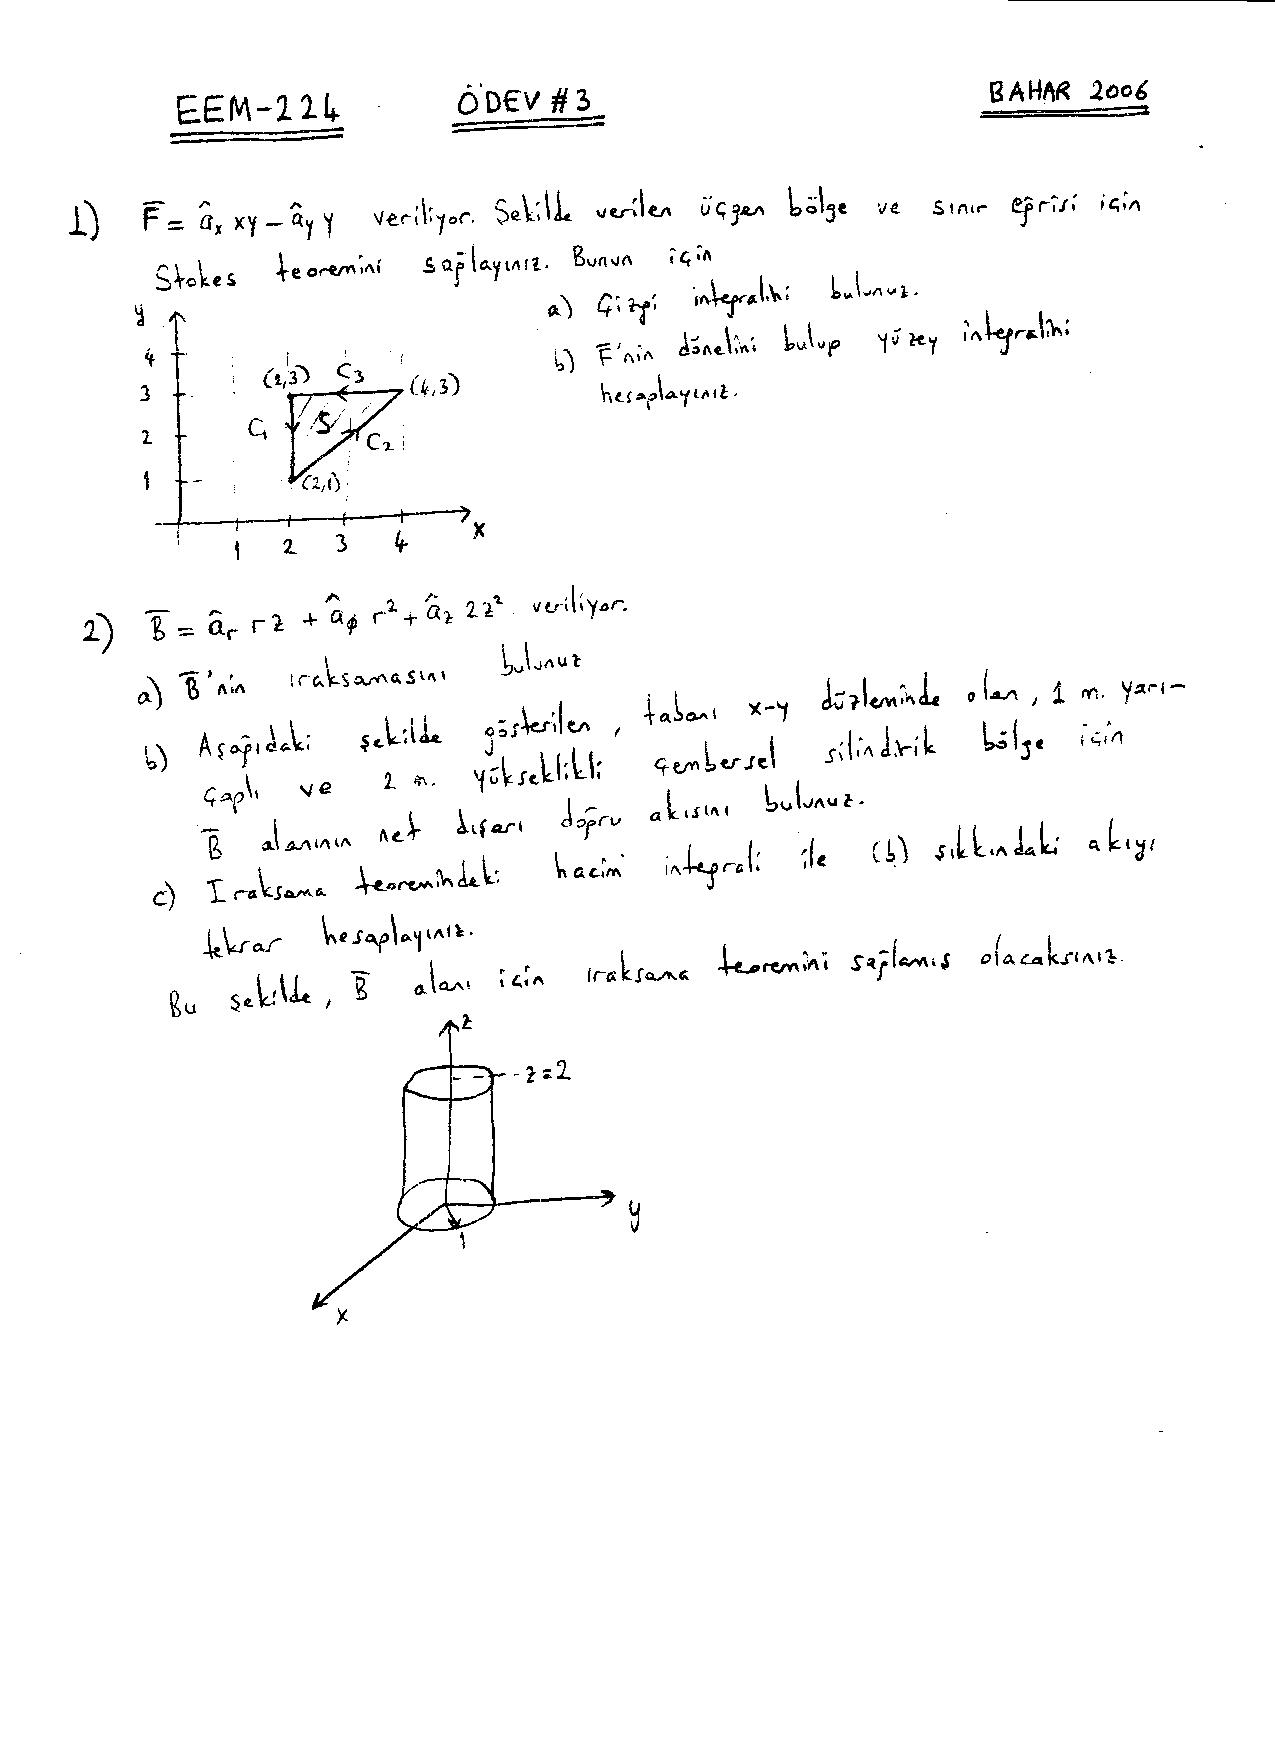 EEM-224 ÖDEV #3 BAHAR 2006
1) F̅ = âₓ xy - â_y y veriliyor. Şekilde verilen üçgen bölge ve sınır eğrisi için
Stokes teoremini sağlayınız. Bunun için
a) Çizgi integralini bulunuz.
b) F̅'nin dönelini bulup yüzey integralini
hesaplayınız.
y
4
3
2
1
(2,3) C₃ (4,3)
C₁ S C₂
(2,1)
1 2 3 4 x
2) B̅ = â_r rz + â_φ r² + â_z 2z² veriliyor.
a) B̅'nin ıraksamasını bulunuz
b) Aşağıdaki şekilde gösterilen, tabanı x-y düzleminde olan, 1 m. yarı-
çaplı ve 2 m. yükseklikli çembersel silindirik bölge için
B̅ alanının net dışarı doğru akısını bulunuz.
c) Iraksama teoremindeki hacim integrali ile (b) şıkkındaki akıyı
tekrar hesaplayınız.
Bu şekilde, B̅ alanı için ıraksama teoremini sağlamış olacaksınız.
z
z=2
y
1
x